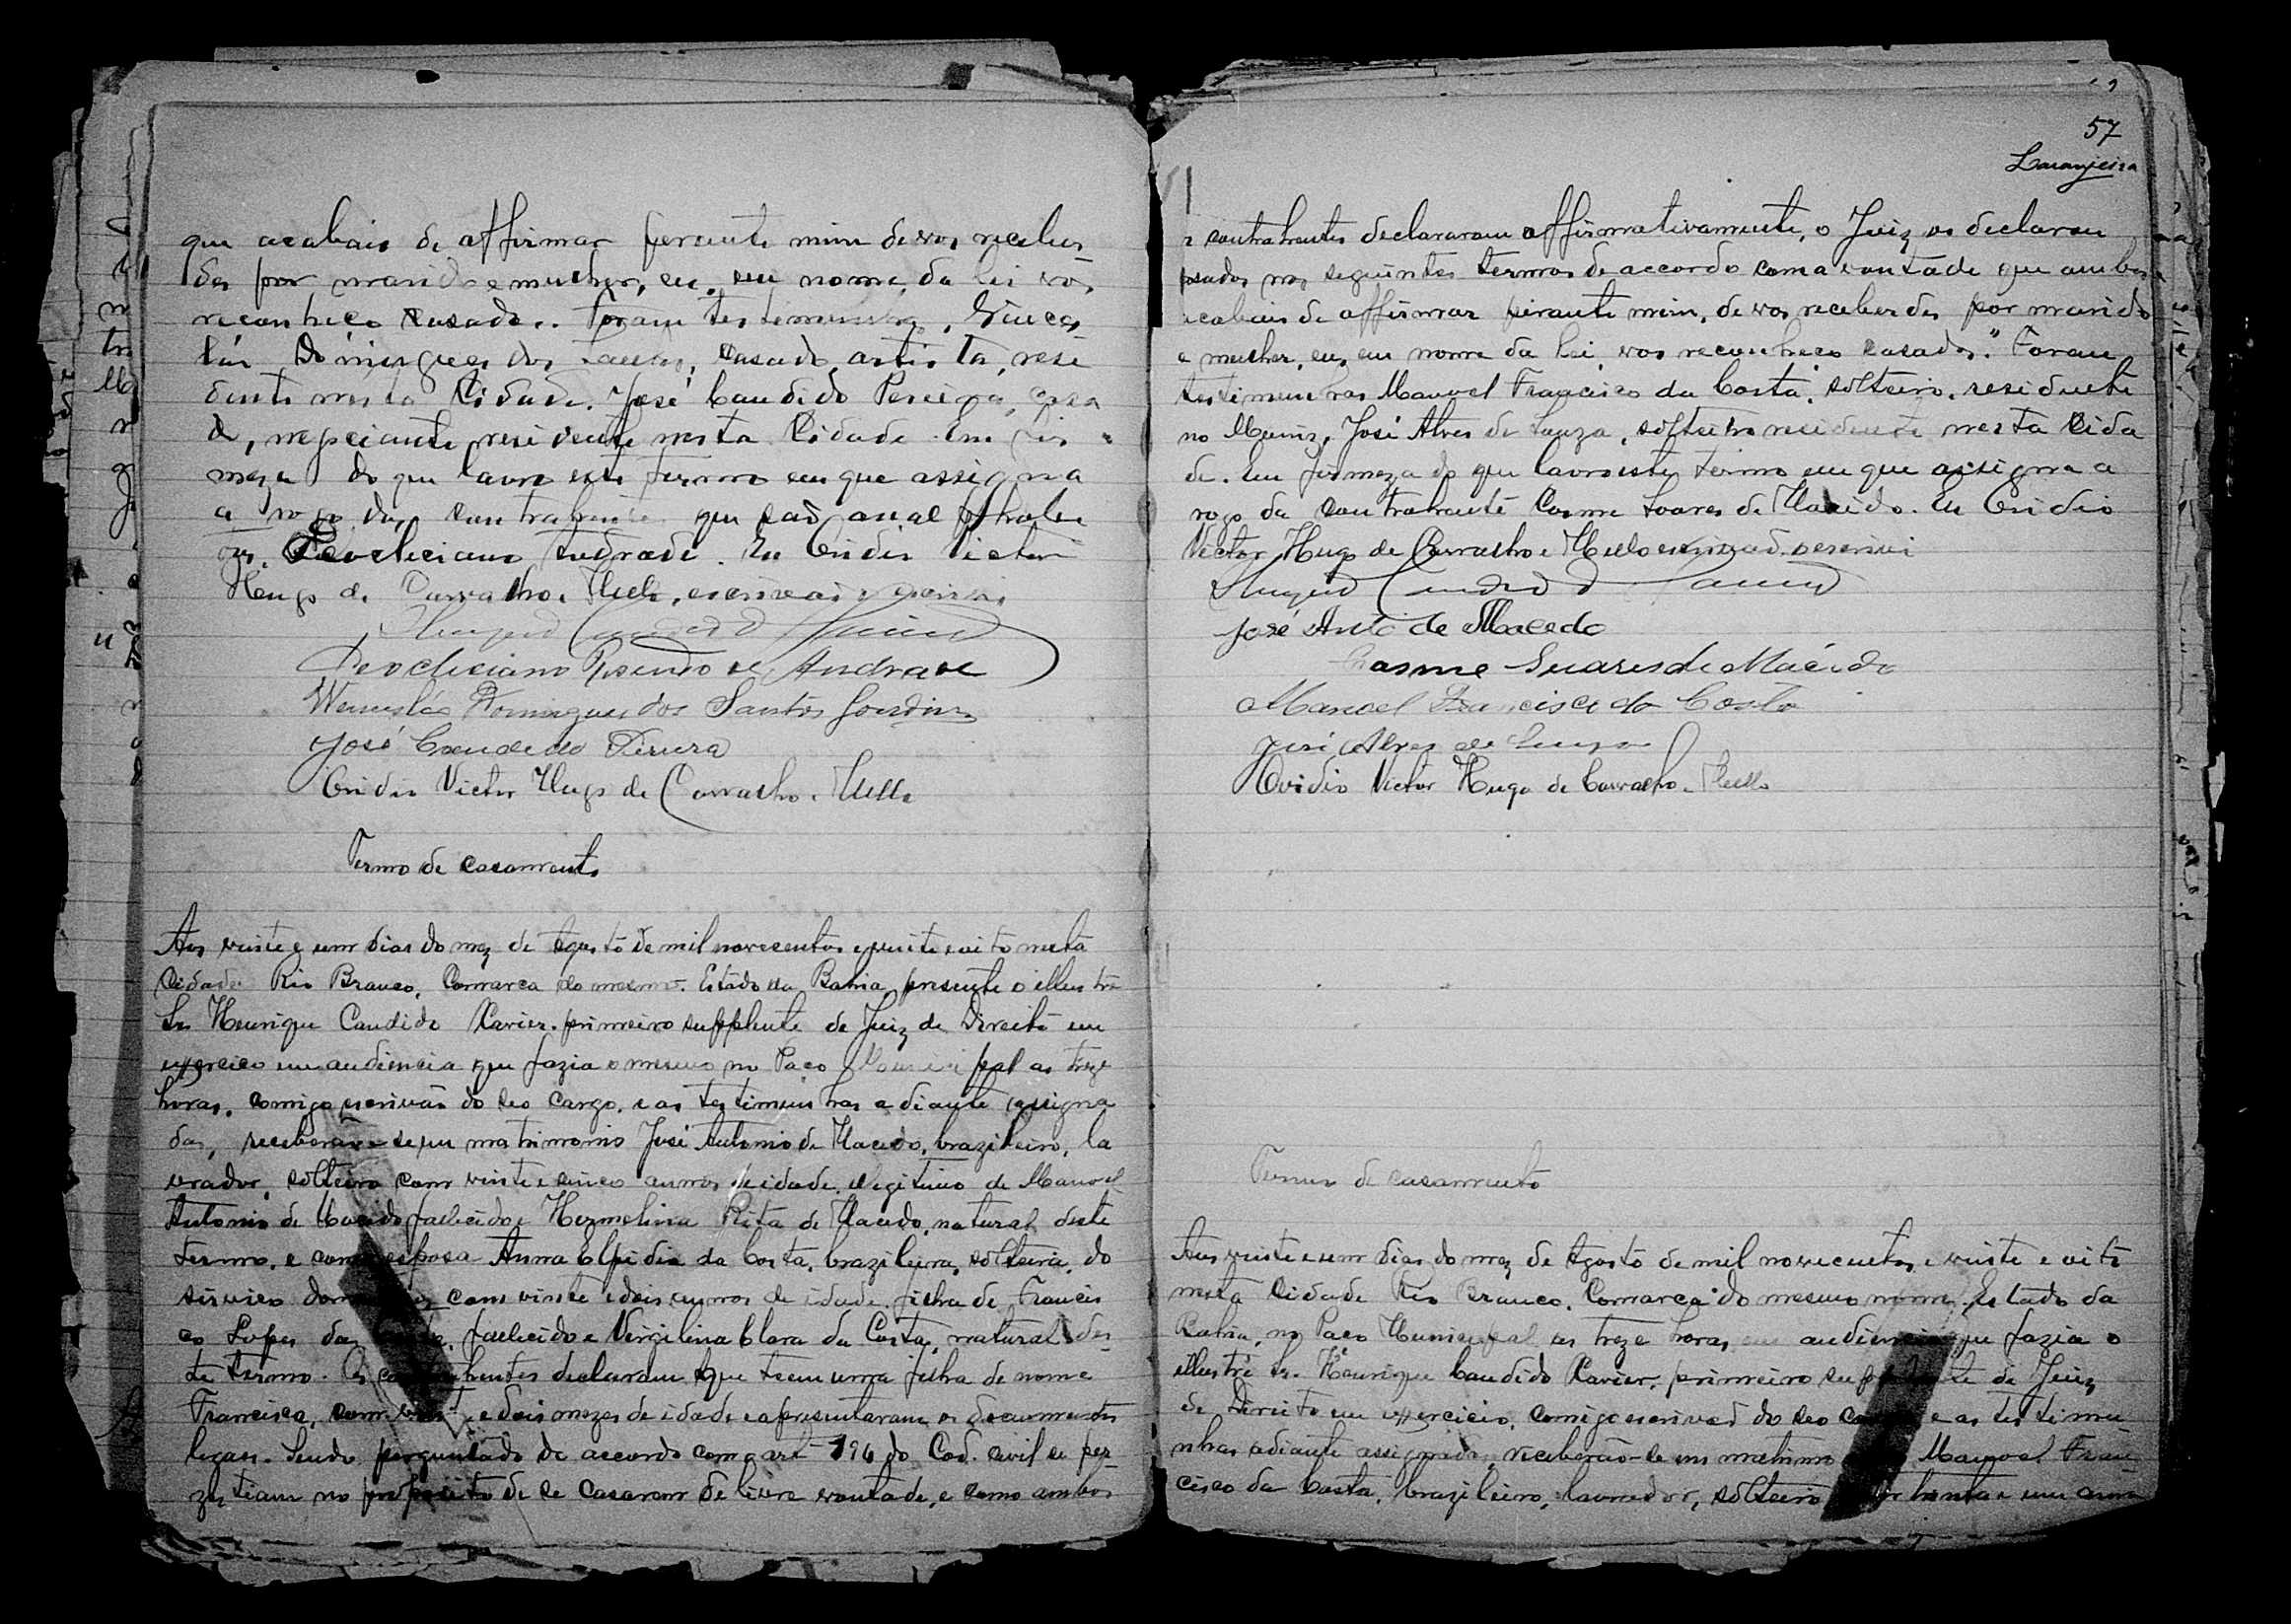 que acabais de affirmar perante mim de vos receber
des por marido e mulher, eu, em nome da lei vos
reconheço casados. Foram testemunhas, Vinces
láu Domingues dos Santos, casado, artista, resi
dente nesta Cidade. José Candido Pereira, casa
do, negociante, residente nesta Cidade. Em fir
meza do que lavro este termo em que assigna
a rogo dos contrahentes que são analphabe
tos. Deocleciano Andrade. Eu Ovidio Victor
Hugo de Carvalho e Mello, escrivão o escrivi.
Henrique Candido Xavier
Deocleciano Rosendo de Andrade
Wenusláo Domingues dos Santos
José Candido Pereira
Ovidio Victor Hugo de Carvalho e Mello
Termo de casamento
Aos vinte e um dias do mez de Agosto de mil novecentos e vinte e oito nesta
Cidade Rio Branco, Comarca do mesmo. Estado da Bahia presente o illustre
Sr Henrique Candido Xavier primeiro supplente de Juiz de Direito em
exercico em audiencia que fazia o mesmo no Paço Municipal as treze
horas, comigo escrivão do seo cargo, e as testimunhas adiante assigna
das, receberão-se em matrimonio José Antonio de Macedo, brazileiro, la
vrador, solteiro com vinte e cinco annos de idade, legitimo de Manoel
Antonio de Macedo fallecido e Hermelina Rita de Macedo, natural deste
termo, e com esposa Anna Elpidia da Costa, brazileira, solteira, do
serviso com vinte e dois annos de idade, filha de Francis
co Lopes da fallecido e Virgilina Clara da Costa, natural des
te termo. Os declaram que tem uma filha de nome
Francisca, com e dois mezes de idade e apresentaram os documentos
legaes. Sendo perguntado de accordo com o art 194 do Cod. civil se per
zistiam no proposito de se casarem de livre vontade, e como ambos
57
Laranjeira
contrahentes declararam affirmativamente, o Juiz os declarou
casados nos seguintes termos de accordo com a vontade que ambos
acabais de affirmar perante mim, de vos receberdes por marido
e mulher, eu, em nome da lei, vos reconheco casados." Foram
testimunhas Manoel Francisco da Costa, solteiro, residente
no Muniz, José Alves de Souza, solteiro residente nesta Cida
de. Em firmeza do que lavro este termo em que assigna a
rogo da contrahente Cosme Soares de Macedo. Eu Ovidio
Victor Hugo de Carvalho e Mello escrivão o escrivi
Henrique Candido Xavier
José Anto de Macedo
Cosme Suares de Macêdo
Manoel Francisco da Costa
José Alves de Souza
Ovidio Victor Hugo de Carvalho e Mello
Termo de casamento
Aos vinte e um dias do mez de Agosto de mil novecentos e vinte e oito
nesta Cidade Rio Branco, Comarca do mesmo nome, Estado da
Bahia, no Paco Municipal as treze horas em audiencia que fazia o
illustre Sr. Henrique Candido Xavier, primeiro supplente de Juiz
de Direito em exercicio, comigo escrivão do seo cargo e as testimu
nhas adiante assignadas, receberão-se em matrimo Manoel Fran
cisco da Costa, brazileiro, lavrador, solteiro trinta e um annos